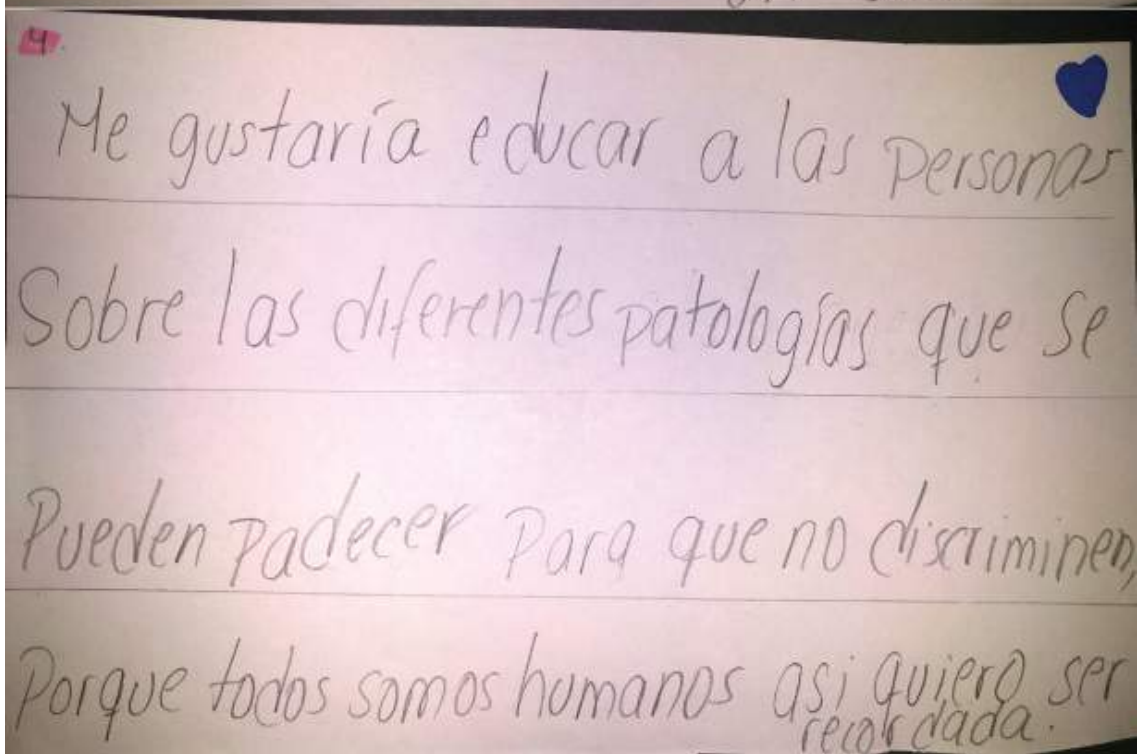 4.
Me gustaría educar a las personas
Sobre las diferentes patologías que se
Pueden padecer para que no discriminen,
Porque todos somos humanos asi quiero ser
recordada.